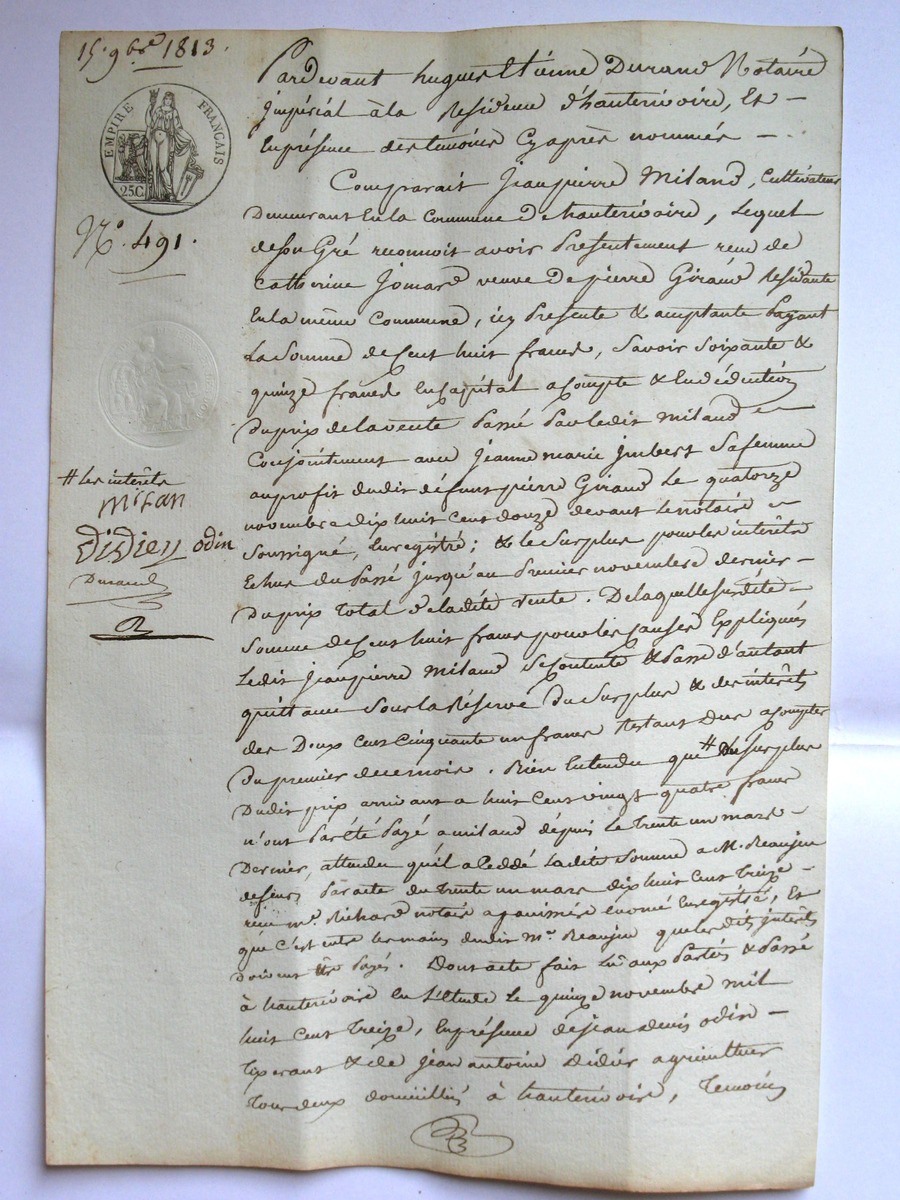 15. 9bre 1813.
EMPIRE FRANÇAIS
25C
No. 491.
# Les intérêts
milan
Didiey odin
Durand
Pardevant hugues Etienne Durand Notaire
Impérial à la Residence d'hauterivoire, Et
En présence des temoins Cy après nommés
Comparait Jean pierre Miland, Cultivateur
Demeurant En la Commune d'hauterivoire, Lequel
de son Gré reconnoit avoir Presentement recu de
Catherine Jomard veuve De pierre Giraud Residante
En la même Commune, icy Presente & acceptante Payant
La Somme de Cent huit francs, Savoir Soixante &
quinze francs En Capital acompte & En déduction
Du prix de la vente Passé Par ledit Miland
Conjointement avec Jeanne marie Imbert Sa femme
au profit dudit défunt pierre Giraud Le quatorze
novembre dix huit Cent douze devant Le notaire
Soussigné, Enregistré; & le Surplus pour les intérêts
Echus du Passé jusqu'au Premier novembre dernier
Du prix Total de la dite vente. De laquelle Susdite
Somme de Cent huit francs pour les Causes Expliqués
Ledit Jean pierre Miland Se Contente & Passe d'autant
quittance Sous la Réserve Du Surplus & des intérêts
des Deux Cent Cinquante un francs Restant Dus acompter
Du premier de ce mois. Bien Entendu que # du Surplus
Dudit prix arrivant a huit Cent vingt quatre francs
n'ont Pas été Payé a miland dépuis Le trente un mars
Dernier, attendu qu'il a Cédé Ladite Somme a M. Beaujeu
de feurs Par acte du trente un mars dix huit Cent treize
recu me. Richard notaire a panissiere Enregistré, Et
que C'est entre les mains dudit Mr. Beaujeu que les dits intérêts
doivent être Payés. Dont acte fait Lu aux Parties & Passé
à hauterivoire En L'Etude Le quinze novembre mil
huit Cent treize, En présence de jean denis odin
Tixerant & de Jean antoine Didier agriculteur
Tous deux domiciliés à hauterivoire, Temoins